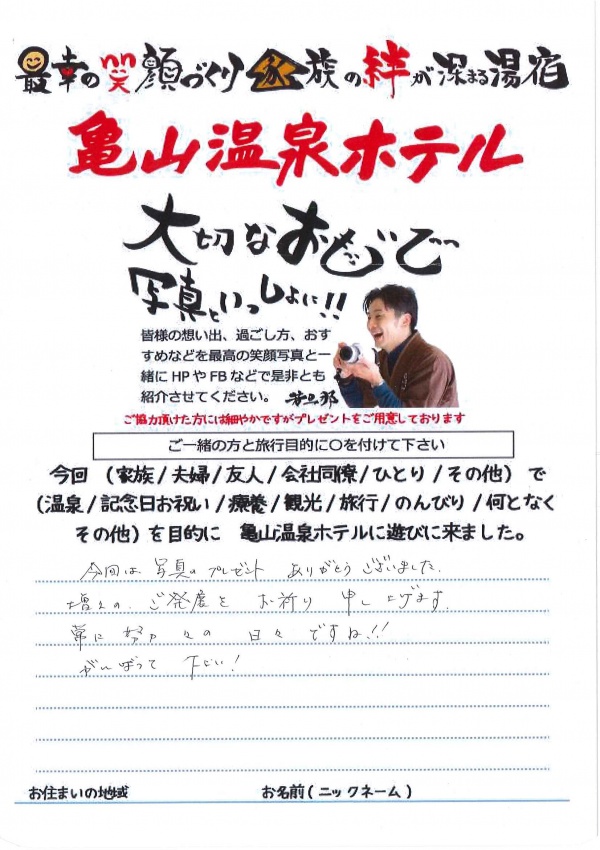 最幸の笑顔づくり 家族の絆が深まる湯宿
亀山温泉ホテル
大切なおもいで
写真といっしょに!!
皆様の想い出、過ごし方、おす
すめなどを最高の笑顔写真と一
緒にHPやFBなどで是非とも
紹介させてください。
ご協力頂けた方には細やかですがプレゼントをご用意しております
ご一緒の方と旅行目的に〇を付けて下さい
今回 (家族/夫婦/友人/会社同僚/ひとり/その他) で
(温泉/記念日お祝い/療養/観光/旅行/のんびり/何となく
その他) を目的に 亀山温泉ホテルに遊びに来ました。
今回は 写真のプレゼント ありがとう ございました。
増々の ご発展を お祈り 申し上げます。
常に 努力 々の 日々 ですね!!
がんばって 下さい!
お住まいの地域 お名前(ニックネーム)